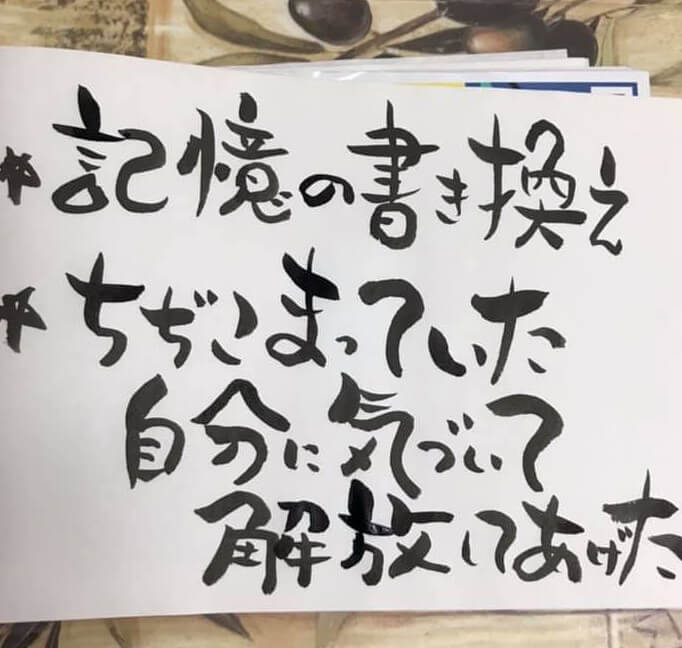 ☆記憶の書き換え
☆ちぢこまっていた
自分に気づいて
解放してあげた